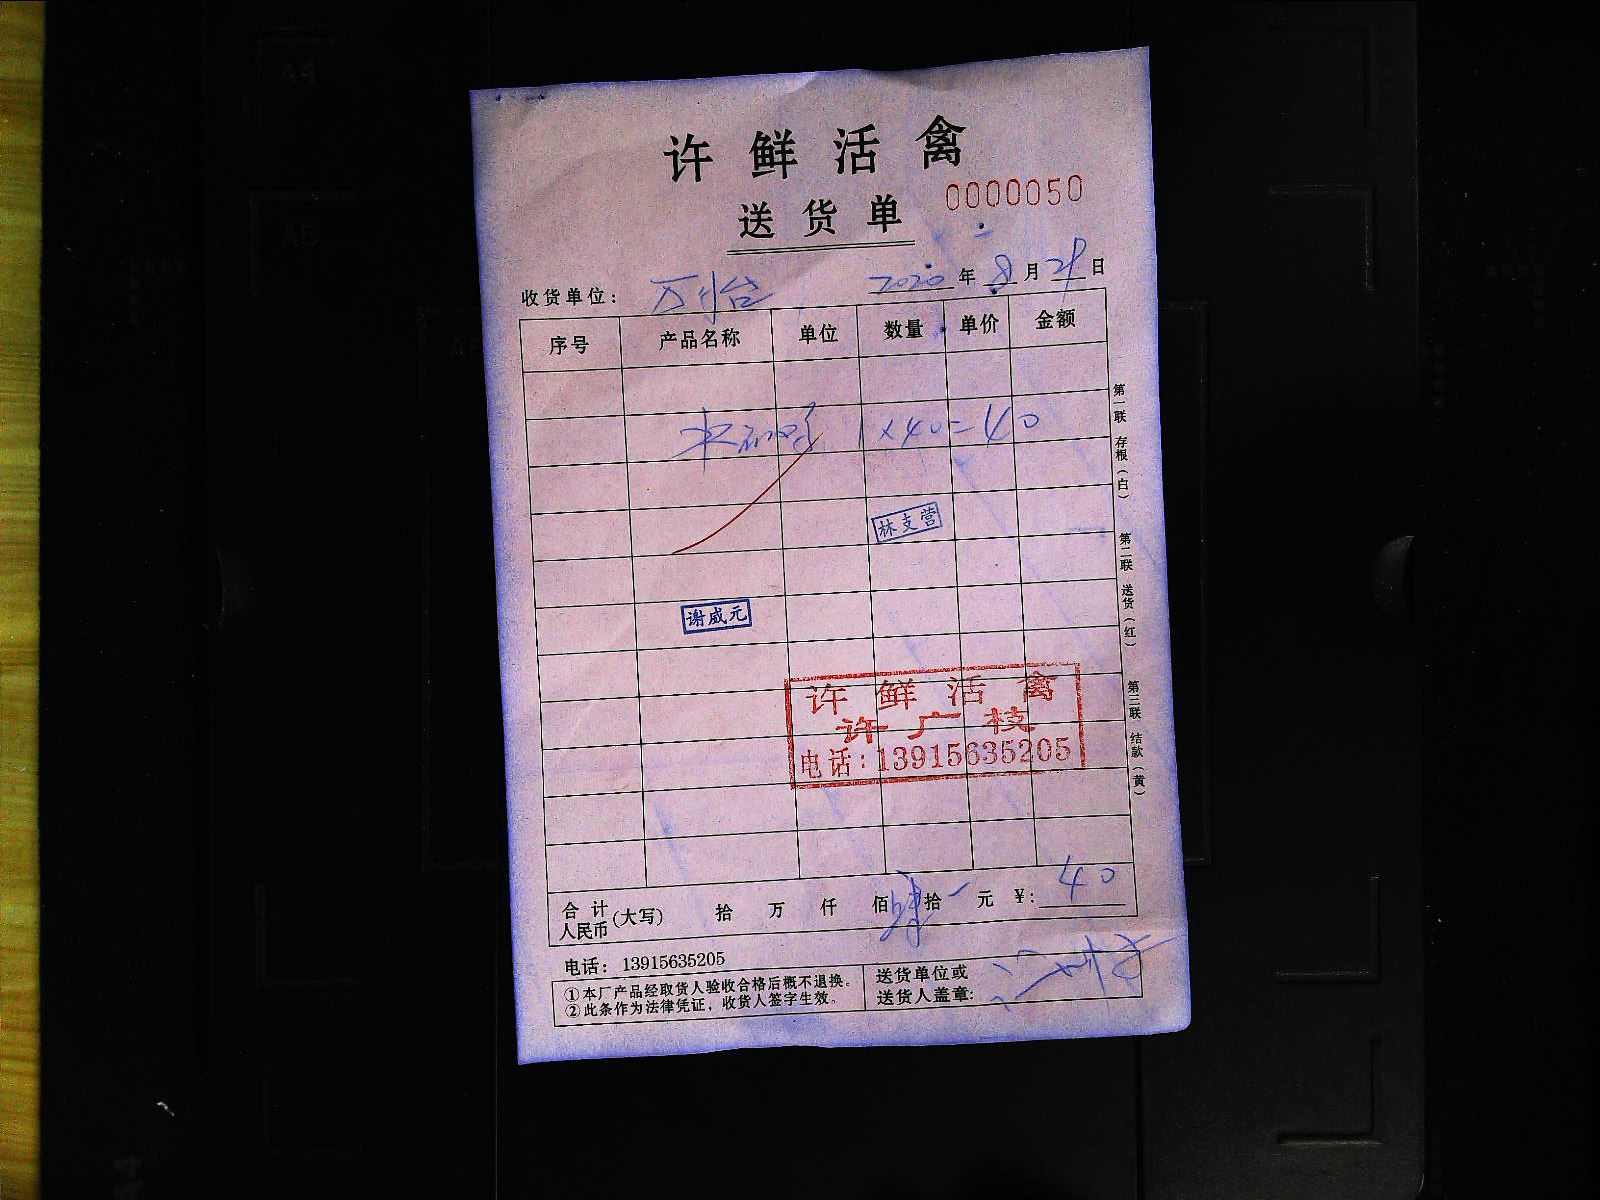 许鲜活禽
送货单
0000050
收货单位：
2020年8月21日
序号 产品名称 单位 数量 单价 金额
1×40=40
林支营
谢威元
许鲜活禽
许广枝
电话：13915635205
合计人民币(大写) 拾 万 仟 佰肆拾 元 ¥：40
电话：13915635205
①本厂产品经取货人验收合格后概不退换。
②此条作为法律凭证，收货人签字生效。
送货单位或
送货人盖章：
第一联 存根（白）
第二联 送货（红）
第三联 结款（黄）
A4
A5